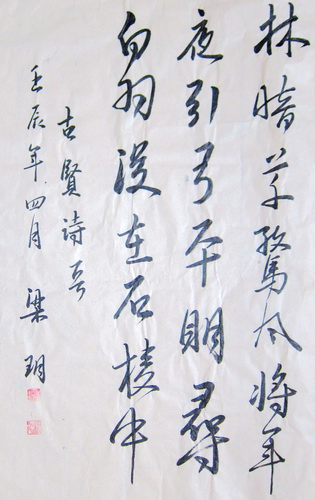 林暗草驚風將軍
夜引弓平明尋
白羽没在石棱中
古賢詩
壬辰年四月 梁玥